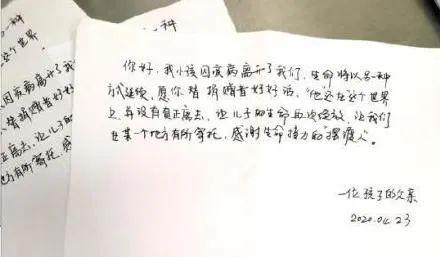 一种
这个世界
因疾病离开了我
替捐赠者好好
正离去，让儿子
方有所寄托，感
你好，我小孩因疾病离开了我们，生命将以另一种
方式延续，愿你替捐赠者好好活，"他还在这个世界
上，并没有真正离去，让儿子的生命再次绽放，让我们
在某一个地方有所寄托，感谢生命接力的摆渡人。
一位孩子的父亲
2020.04.23